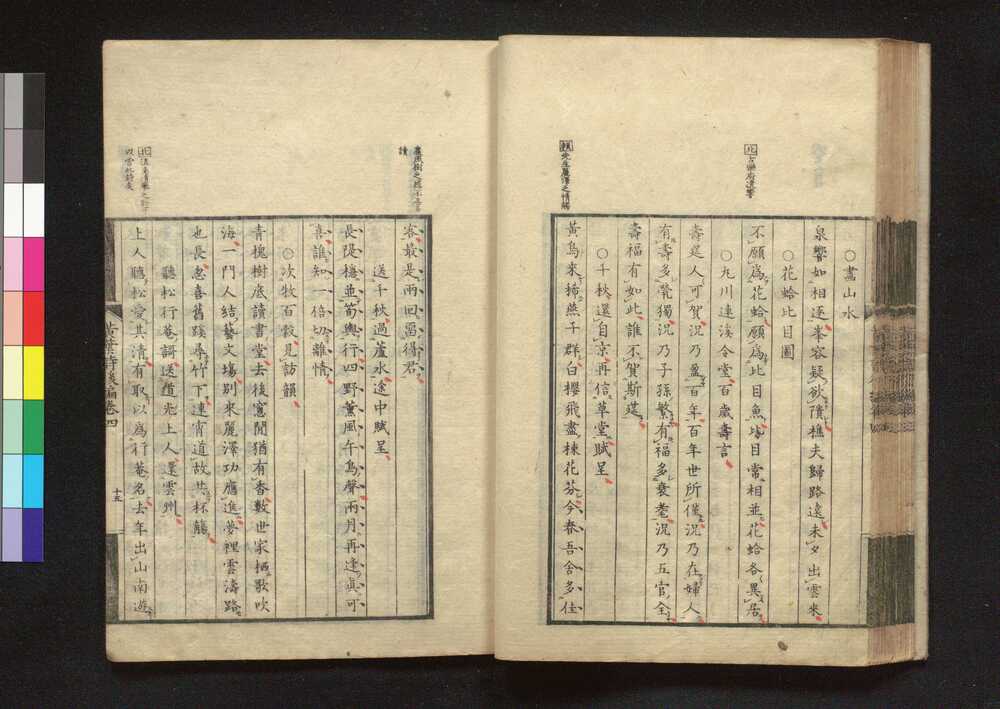 ○畫山水
泉響如相逐峯容疑欲隤樵夫歸路遠未夕出雲來
○花蛤比目圖
不願爲花蛤願爲比目魚比目常相並花蛤各異居
○九川連溪令堂百歲壽言
壽筵人可賀況乃盈百年百年世所僅況乃在婦人
有壽多煢獨況乃子孫繁有福多衰耄況乃五官全
壽福有如此誰不賀斯筵
○千秋還自京再信草堂賦呈
黃鳥來稀燕子群白櫻飛盡楝花芬今春吾舍多佳
客最是兩回留得君
送千秋過蘆水途中賦呈
長隄穩並筍輿行四野薰風午鳥聲兩月再逢眞可
喜誰知一倍切離情
○次牧百穀見訪韻
青槐樹底讀書堂去後窻間猶有香數世家栖歌吹
海一門人結藝文場別來麗澤功應進夢裡雲濤路
也長忽喜舊蹊尋竹下連宵道故共杯觴
聽松行菴謌送道光上人還雲州
上人聽松愛其清有取以爲行菴名去年出山南遊
黃葉詩後編卷四
十五